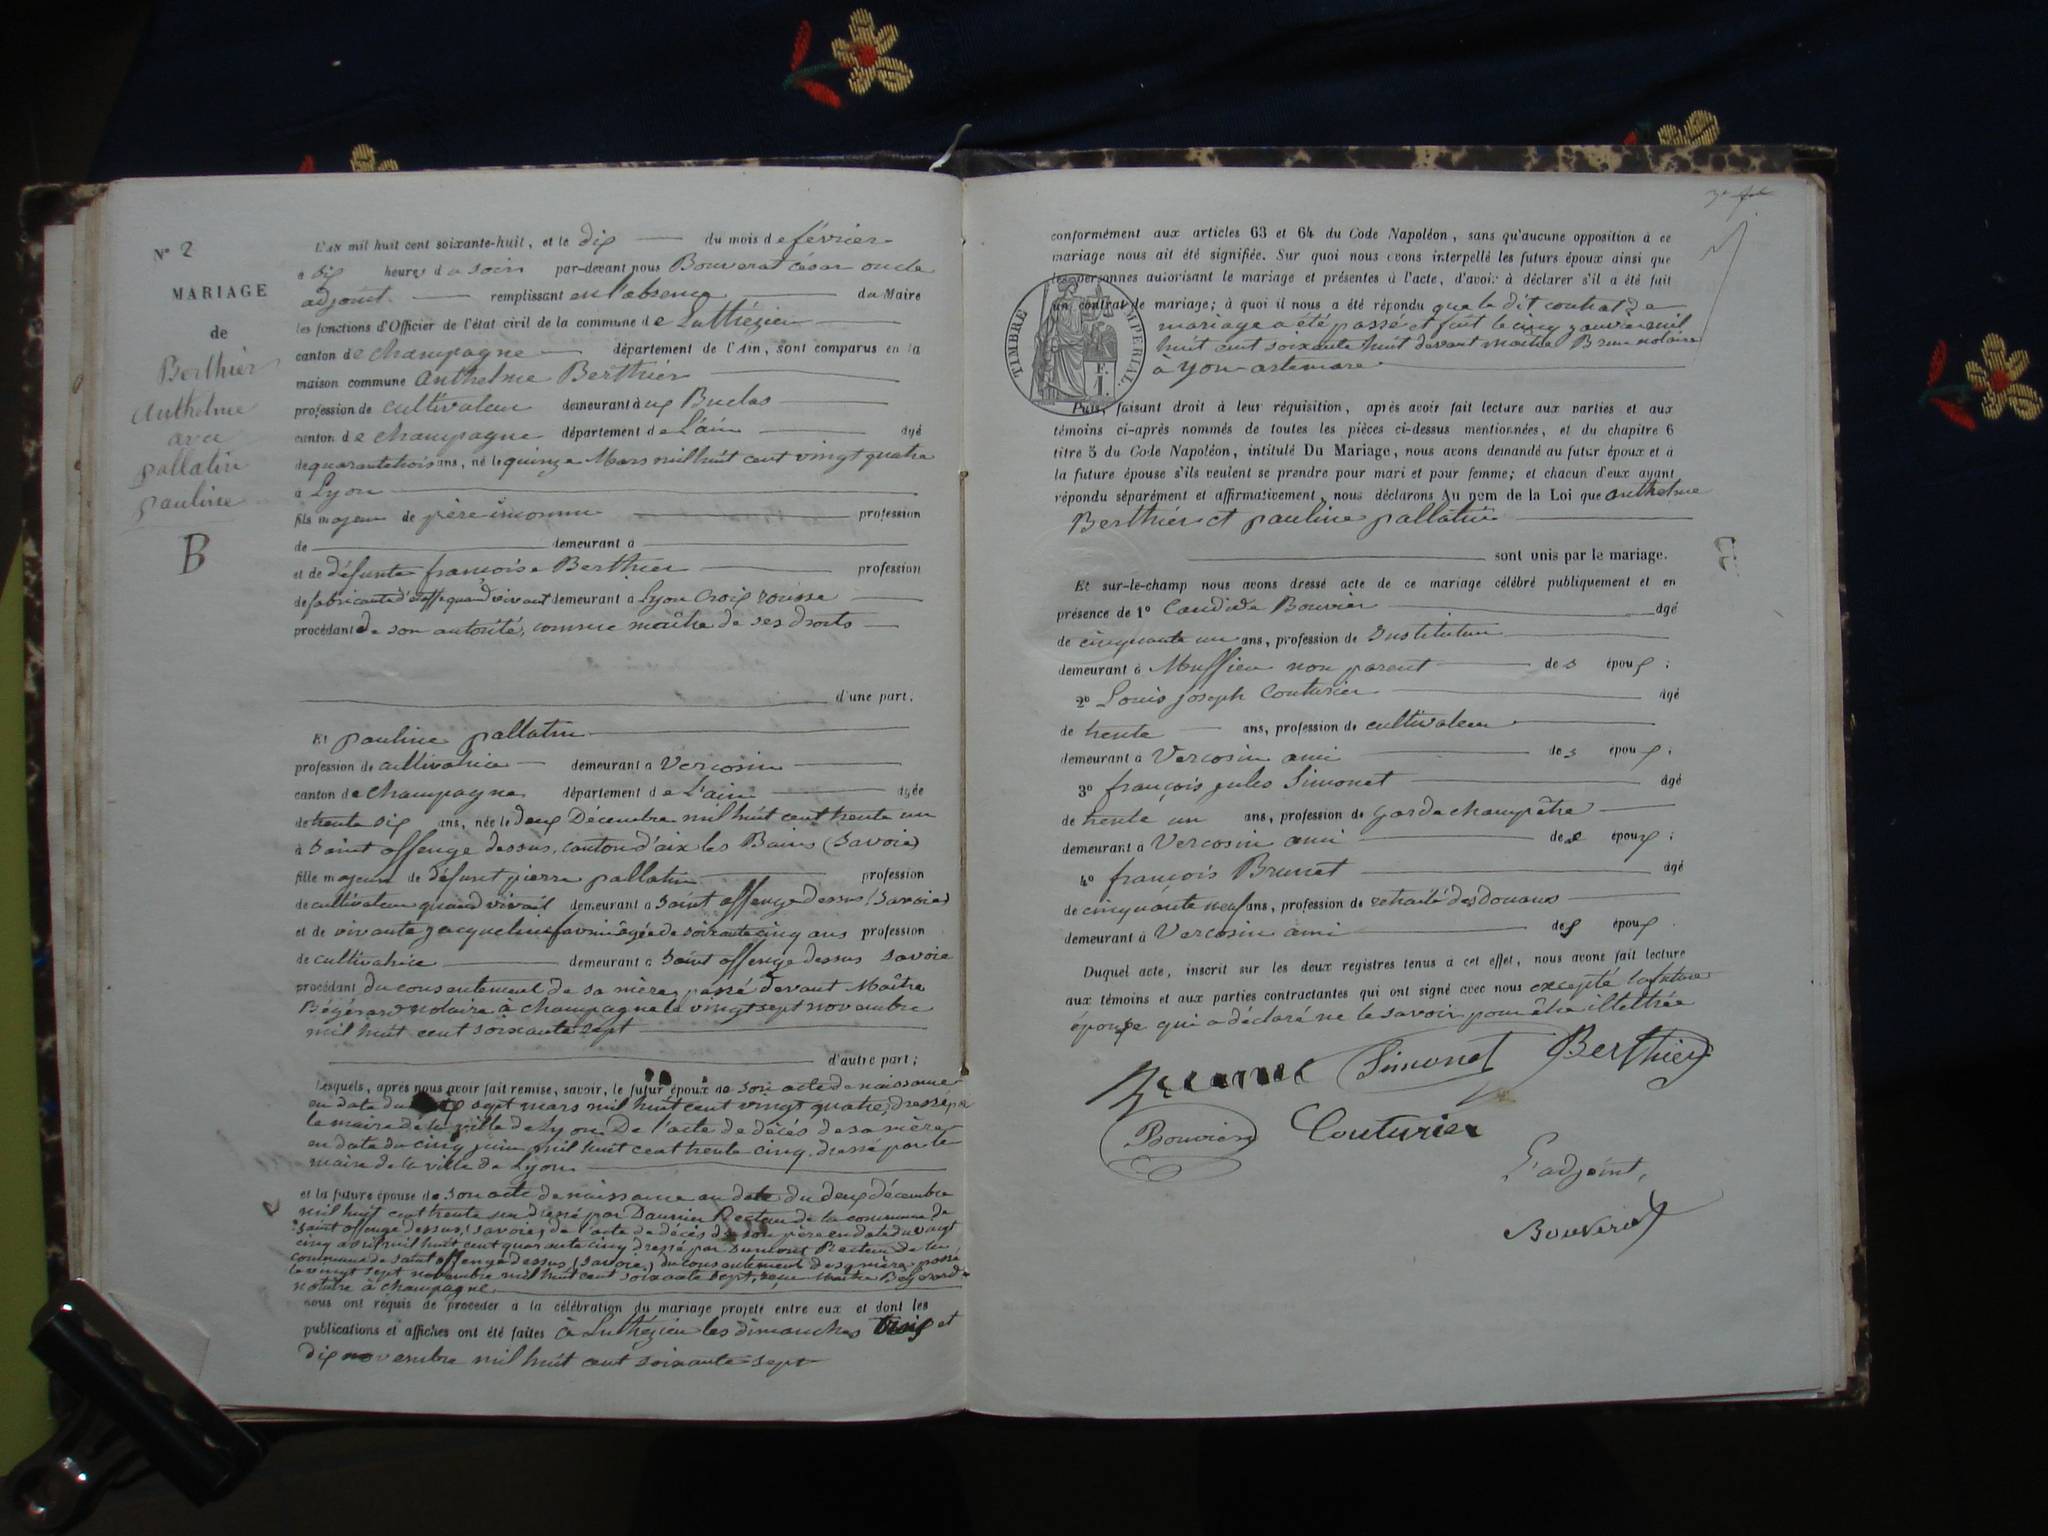 N° 2
MARIAGE
de
Berthier
Anthelme
avec
pallatin
pauline
B
L'AN mil huit cent soixante-huit, et le dix du mois de février
a dix heures du soir par-devant nous Bouverat César oncle
adjoint remplissant en l'absence du Maire
les fonctions d'Officier de l'état civil de la commune de Luthézieu
canton de champagne département de l'Ain, sont comparus en la
maison commune Anthelme Berthier
profession de cultivateur demeurant à
canton de champagne département de L'ain âgé
de quarante trois ans, né le quinze Mars mil huit cent vingt quatre
à Lyon
fils majeur de père inconnu profession
de demeurant à
et de défunte françoise Berthier profession
de fabricante d'étoffe quand vivait demeurant à Lyon Croix rousse
procédant de son autorité, comme maître de ses droits
d'une part.
Et pauline pallatin
profession de cultivatrice demeurant à Vercosin
canton de champagne département de L'ain âgée
de trente six ans, née le deux Décembre mil huit cent trente un
à Saint offenge dessus, canton d'aix les Bains (Savoie)
fille majeure de défunt pierre pallatin profession
de cultivateur quand vivait demeurant à Saint offenge dessus (Savoie)
et de vivante jacqueline âgée de soixante cinq ans profession
de cultivatrice demeurant à Saint offenge dessus Savoie
procédant du consentement de sa mère, passé devant Maître
Bégérard notaire à champagne le vingt sept novembre
mil huit cent soixante sept
d'autre part;
Lesquels, après nous avoir fait remise, savoir, le futur époux de son acte de naissance
en date du sept mars mil huit cent vingt quatre, dressé par
le maire de la ville de Lyon. De l'acte de décès de sa mère
en date du cinq juin mil huit cent trente cinq, dressé par le
maire de la ville de Lyon
et la future épouse de son acte de naissance en date du deux décembre
mil huit cent trente un dressé par Daunier Recteur de la commune de
Saint offenge dessus (Savoie) de l'acte de décès de son père en date du vingt
cinq avril mil huit cent quarante cinq dressé par Dumont Recteur de la
commune de Saint offenge dessus (Savoie) du consentement de sa mère passé
le vingt sept novembre mil huit cent soixante sept, reçu Maître Bégérard
notaire à champagne
nous ont requis de procéder à la célébration du mariage projeté entre eux et dont les
publications et affiches ont été faites à Luthézieu les dimanches trois et
dix novembre mil huit cent soixante sept
conformément aux articles 63 et 64 du Code Napoléon, sans qu'aucune opposition à ce
mariage nous ait été signifiée. Sur quoi nous avons interpellé les futurs époux ainsi que
les personnes autorisant le mariage et présentes à l'acte, d'avoir à déclarer s'il a été fait
un contrat de mariage; à quoi il nous a été répondu que le dit contrat de
mariage a été passé et fait le cinq janvier mil
huit cent soixante huit devant maître Brun notaire
à yon-artemare
TIMBRE IMPERIAL.
F.
1.
Puis, faisant droit à leur réquisition, après avoir fait lecture aux parties et aux
témoins ci-après nommés de toutes les pièces ci-dessus mentionnées, et du chapitre 6
titre 5 du Code Napoléon, intitulé Du Mariage, nous avons demandé au futur époux et à
la future épouse s'ils veulent se prendre pour mari et pour femme; et chacun d'eux ayant
répondu séparément et affirmativement, nous déclarons Au nom de la Loi que anthelme
Berthier et pauline pallatin
sont unis par le mariage.
Et sur-le-champ nous avons dressé acte de ce mariage célébré publiquement et en
présence de 1° Candide Bouvier âgé
de cinquante un ans, profession de Instituteur
demeurant à Mussieu non parent des époux;
2° Louis joseph Couturier âgé
de trente ans, profession de cultivateur
demeurant à Vercosin ami des époux;
3° françois jules Simonet âgé
de trente un ans, profession de garde champêtre
demeurant à Vercosin ami des époux;
4° françois Brunet âgé
de cinquante neuf ans, profession de retraité des Douanes
demeurant à Vercosin ami des époux.
Duquel acte, inscrit sur les deux registres tenus à cet effet, nous avons fait lecture
aux témoins et aux parties contractantes qui ont signé avec nous excepté la future
épouse qui a déclaré ne le savoir pour être illettrée
Brunet Simonet Berthier
Bouvier Couturier
L'adjoint,
Bouverat